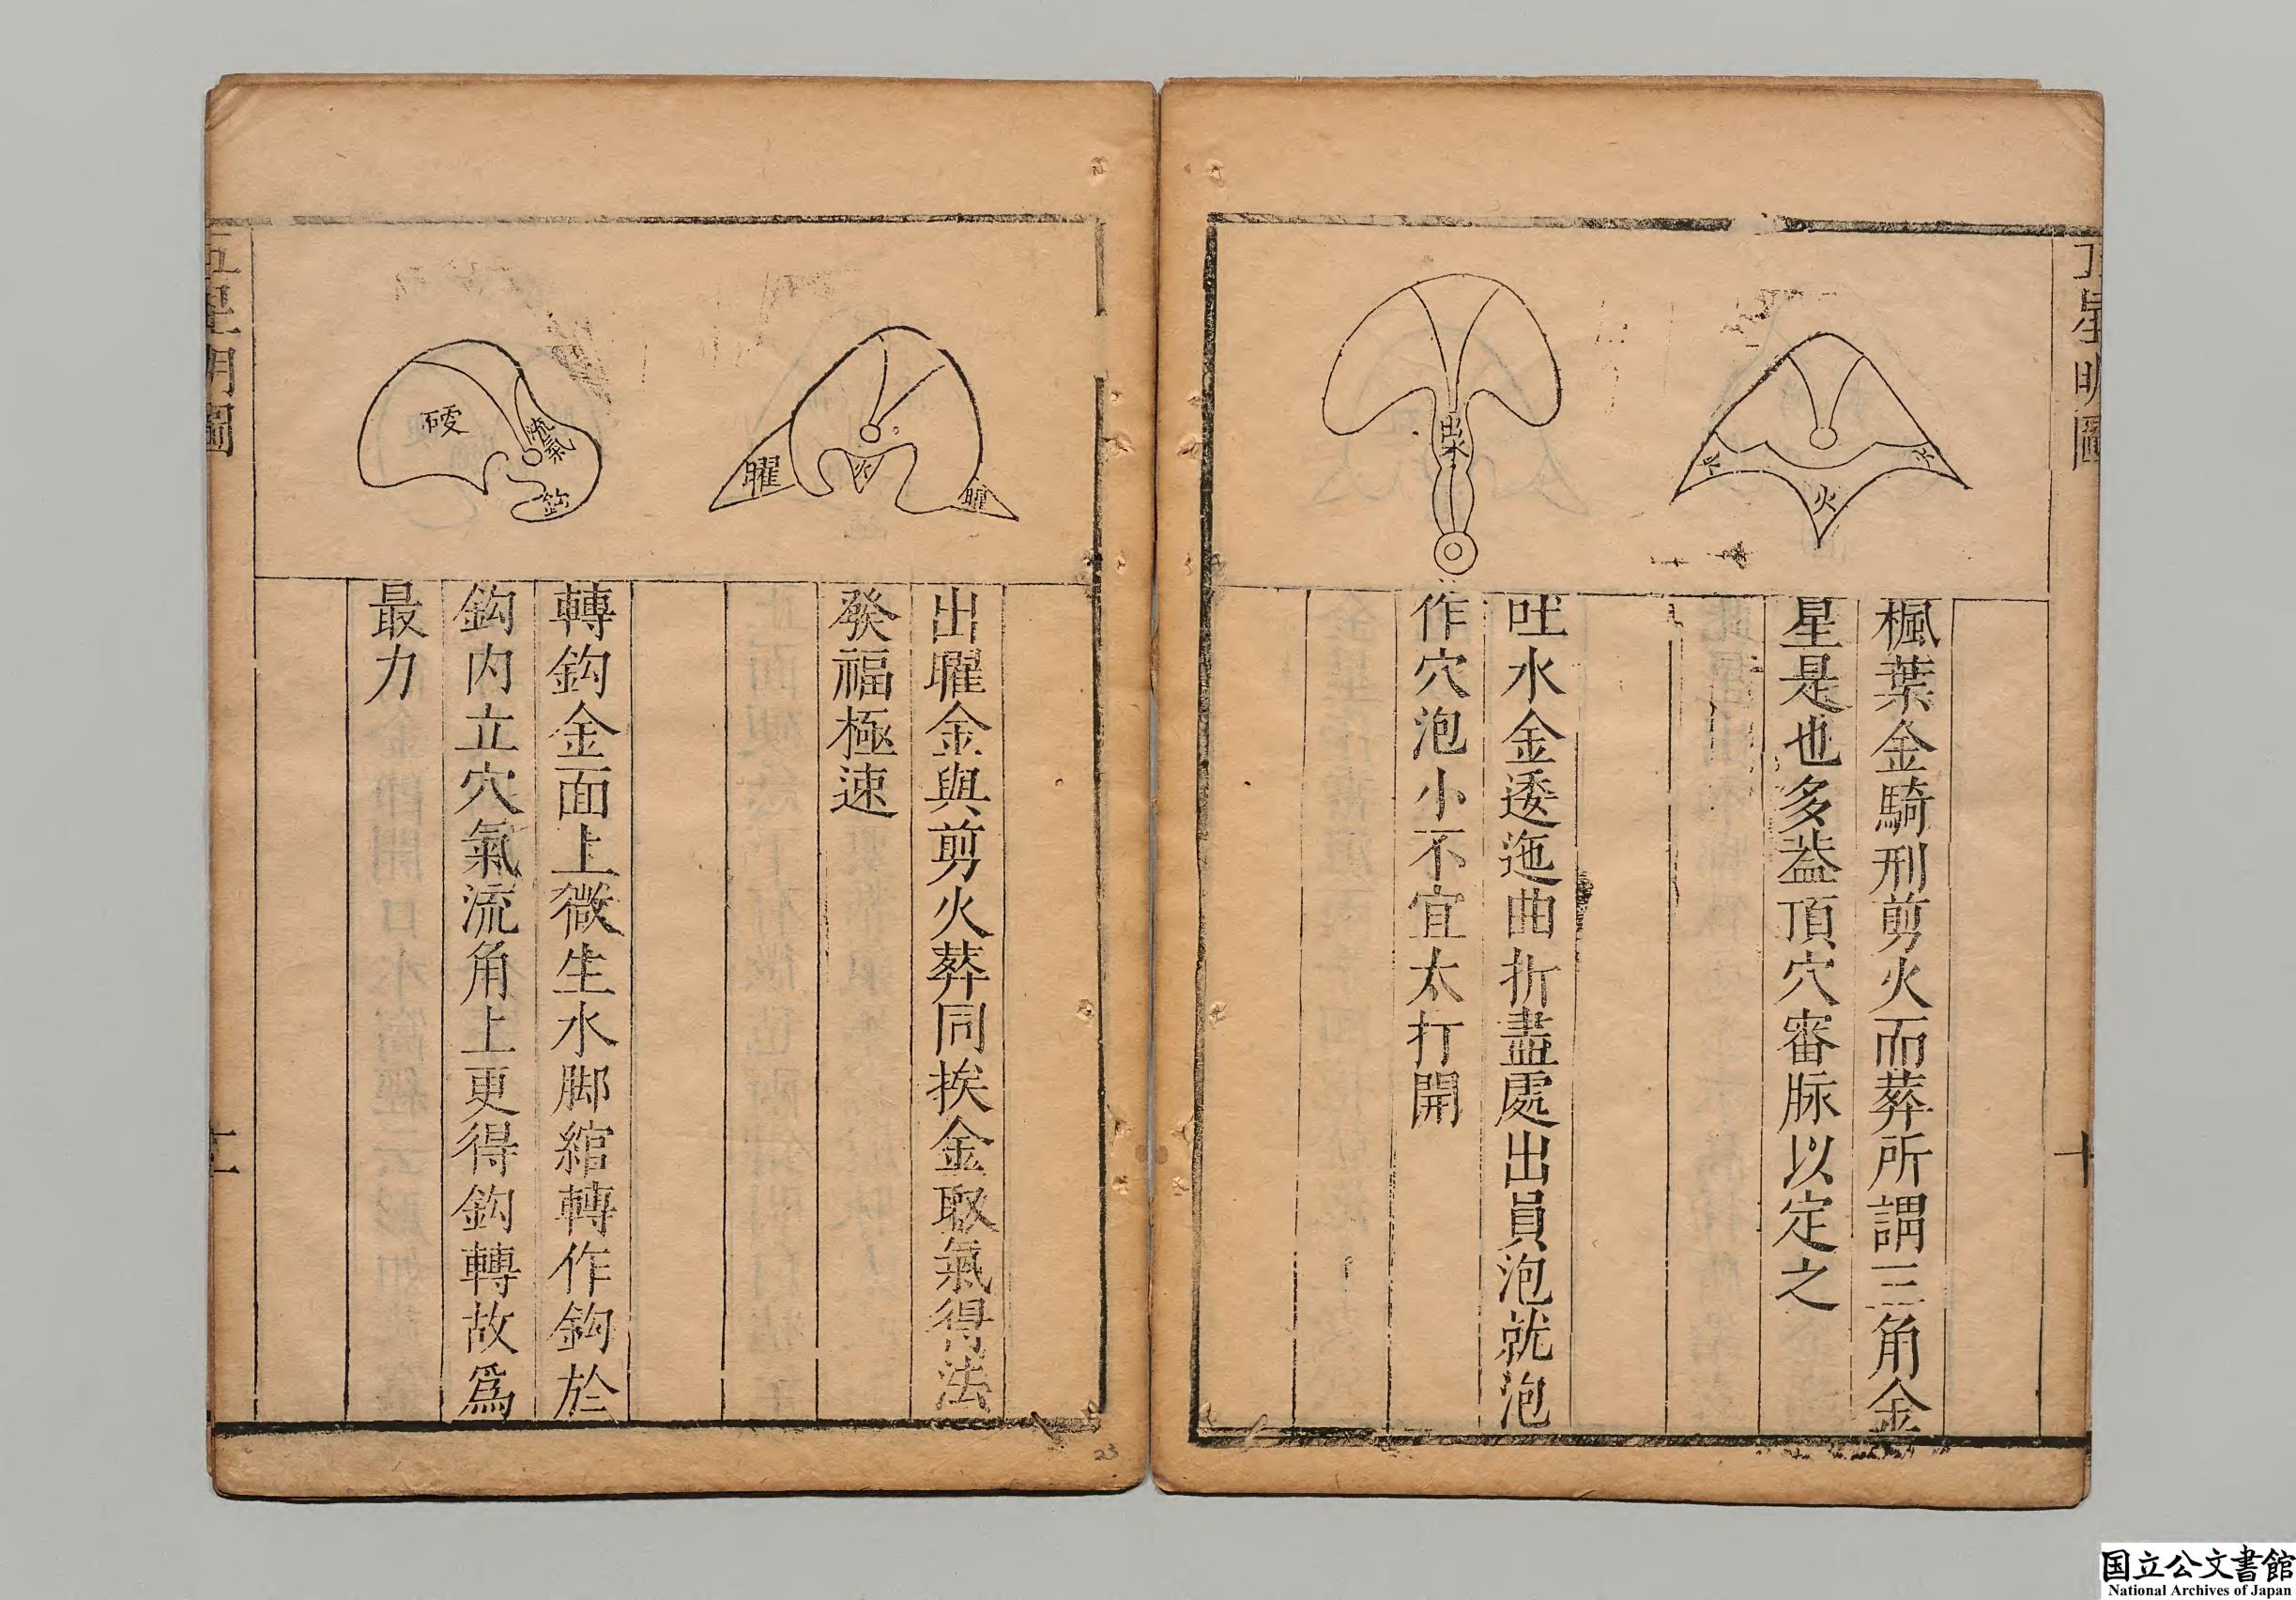 五星明圖
十
火
火
火
楓葉金騎刑剪火而葬所謂三角金
星是也多葢頂穴審脉以定之
出水
吐水金逶迤曲折盡處出員泡就泡
作穴泡小不宜太打開
曜
火
曜
出曜金與剪火葬同挨金取氣得法
發福極速
硬
流氣
鈎
轉鈎金面上微生水脚綰轉作鈎於
鈎内立穴氣流角上更得鈎轉故爲
最力
五星明圖
23
国立公文書館
National Archives of Japan